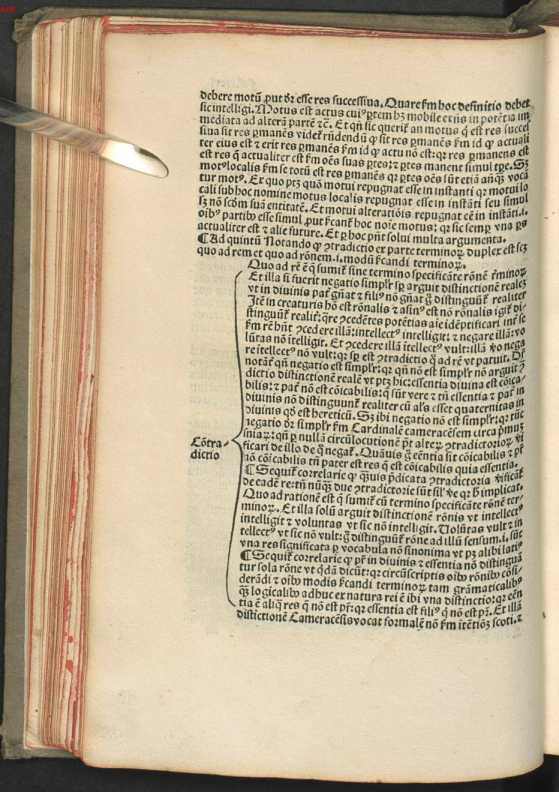 debere motū ꝓut dr̄ esse res successiua. Quare ẜm hoc definitio debet
sic intelligi. Motus est actus cuiꝰ ꝑtem hꝫ mobile et ñs in potētia im
mediata ad alterā partē ⁊c̄. Et qn̄ sic querit̄ an motus q̄ est res succes
siua sit res ꝑmanēs videt̄ rn̄dendū ꝙ sit res ꝑmanēs ẜm id ꝙ actuali
ter eius est ⁊ erit res ꝑmanēs ẜm id ꝙ actu nō est: qꝛ res ꝑmanens est
est res q̄ actualiter est ẜm oēs suas ꝑtes
motꝰ localis ẜm se totū est res ꝑmanēs qꝛ ꝑtes oēs sūt etiā
tur motꝰ. Ex quo ptꝫ quā motui repugnat esse in instanti qꝛ motui lo
cali sub hoc nomine motus localis repugnat esse in instāti seu simul
sꝫ nō scd̄m suā entitatē. Et motui alteratiōis repugnat eē in instāti .i.
oībꝰ partibꝰ esse simul ꝓut hoc noīe motus: qꝛ sic semꝑ vna ꝑs
actualiter est ⁊ alie future. Et ꝑ hoc pn̄t solui multa argumenta.
¶ Ad quintū Notando ꝙ ꝯtradictio ex parte terminoꝝ duplex est scꝫ
quo ad rem et quo ad rōnem .i. modū ẜcandi terminoꝝ.
Quo ad rē ē q̄ sumit̄ sine termino specificāte rōnē terminoꝝ
Et illa si fuerit negatio simplr̄ sꝑ arguit distinctionē realeꝫ
vt in diuinis pat̄ gn̄at ⁊ filiꝰ nō gn̄at g̊ distinguūt̄ realiter
Itē in creaturis hō est rōnalis ⁊ asinꝰ est nō rōnalis igit̄ di-
stinguūt̄ realit̄: qr̄e ꝯcedētes potētias aīe idēptificari int̄ se
ẜm rē hn̄t ꝯcedere illā: intellectꝰ intelligit: ⁊ negare illā: vo
lūtas nō ītelligit. Et ꝯcedere illā ītellectꝰ vult: illā vo nega
re ītellectꝰ nō vult: qꝛ sꝑ est ꝯtradictio q̄ ad rē vt patuit. Dꝫ
notāt̄ qn̄ negatio est simplr̄: qꝛ qn̄ nō est simplr̄ nō arguit ꝯ
dictio distinctionē realē vt ptꝫ hic: essentia diuina est cōīca-
bilis: ⁊ pat̄ nō est cōīcabilis: q̄ sūt vere ⁊ tn̄ essentia ⁊ pat̄ in
diuinis nō distinguunt̄ realiter cū al̓s esset quaternitas in
diuinis qd̓ est hereticū. Sꝫ ibi negatio nō est simplr̄: qꝛ tūc
negatio dr̄ simplr̄ ẜm Cardinalē cameracēsem circa pͥmū
snīaꝝ: qn̄ ꝑ nullā circūlocutionē pt̄ alteꝝ ꝯtradictorioꝝ vi
ficari de illo de q̊ negat̄. Quāuis g̊ eēntia sit cōīcabilis ⁊ pr̄
nō cōīcabilis tn̄ pater est res q̄ est cōīcabilis quia essentia.
¶ Sequit̄ correlarie ꝙ q̄uis p̄dicata ꝯtradictoria
de eadē re: tn̄ nūqꝫ due ꝯtradictorie sūt sil̓ ve qꝛ h̄ implicat.
Quo ad rationē est q̄ sumit̄ cū termino specificāte rōnē ter-
minoꝝ. Et illa solū arguit distinctionē rōnis vt intellectꝰ
intelligit ⁊ voluntas vt sic nō intelligit. Volūtas vult ⁊ in
tellectꝰ vt sic nō vult: g̊ distinguūt̄ rōne ad illū sensum .i. sūt
vna res significata ꝑ vocabula nō sinonima vt pꝫ alibi latiꝰ
¶ Sequit̄ correlarie ꝙ pr̄ in diuinis ⁊ essentia nō distinguū
tur sola rōne vt q̄dā dicūt: qꝛ circūscriptis oībꝰ rōnibꝰ cōsi-
derādi ⁊ oībꝰ modis ẜcandi terminoꝝ tam grāmaticalibꝰ
qꝫ logicalibꝰ adhuc ex natura rei ē ibi vna distinctio: qꝛ eēn
tia ē aliq̄ res q̄ nō est pr̄: qꝛ essentia est filiꝰ q̄ nō est pr̄. Et illā
distictionē Cameracēsis vocat formalē nō ẜm ītētiōꝫ scoti. ⁊
Cōtra-
dictio